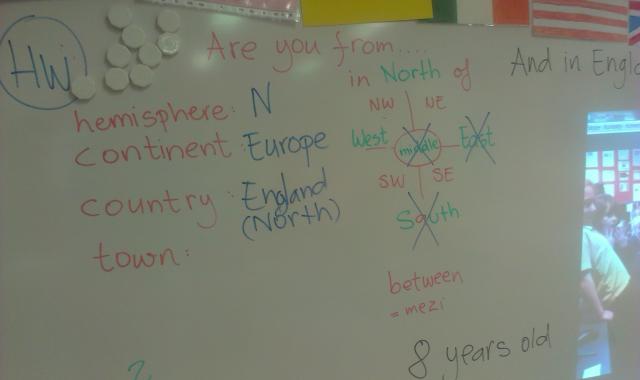 HW
Are you from....
in North of
And in
hemisphere: N
continent: Europe
country: England
(North)
town:
NW NE
West middle East
SW SE
South
between
= mezi
8 years old
?